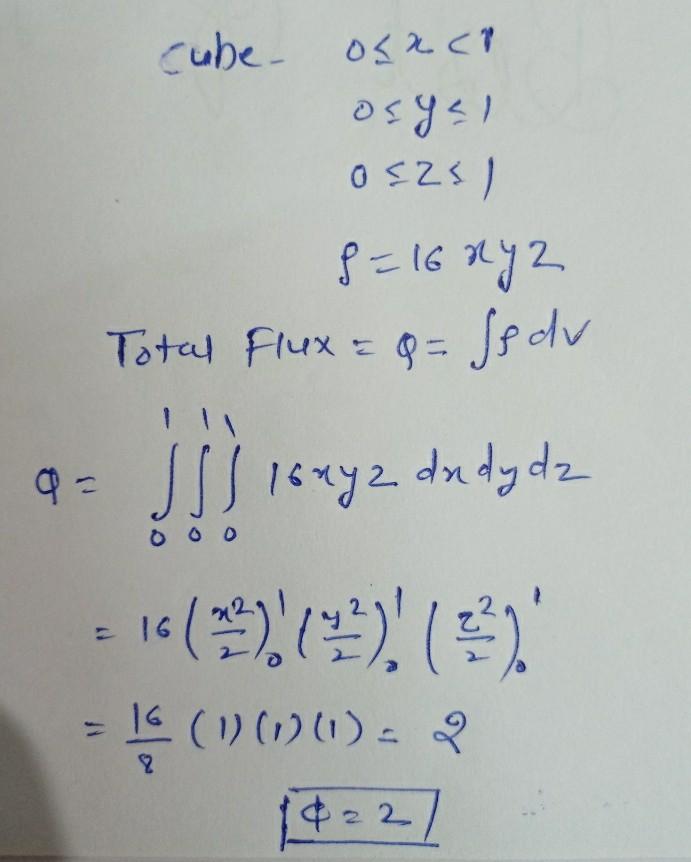 cube - 0 ≤ x < 1
0 ≤ y ≤ 1
0 ≤ z ≤ 1
ρ = 16 xyz
Total Flux = φ = ∫ρ dv
φ = ∫₀¹∫₀¹∫₀¹ 16xyz dx dy dz
= 16 (x²/2)₀¹ (y²/2)₀¹ (z²/2)₀¹
= 16/8 (1) (1) (1) = 2
φ = 2